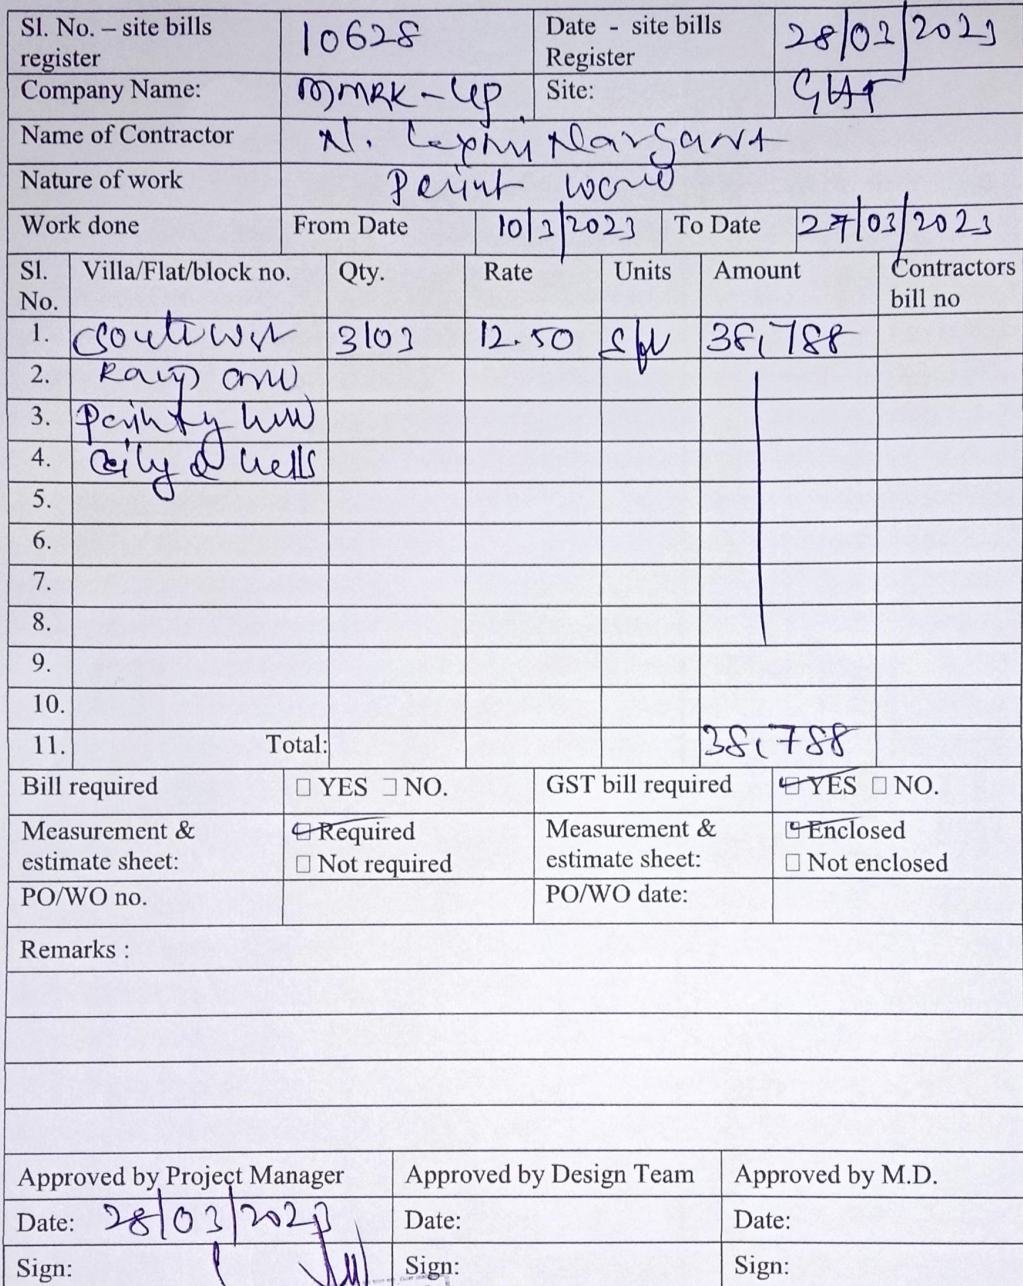 Sl. No. – site bills register 10628 Date - site bills Register 28/03/2023
Company Name: MMRK-Up Site: GHT
Name of Contractor N.
Nature of work Paint work
Work done From Date 10/3/2023 To Date 27/03/2023
Sl. No. Villa/Flat/block no. Qty. Rate Units Amount Contractors bill no
1. 3103 12.50 Sft 38,788
2.
3.
4.
5.
6.
7.
8.
9.
10.
11. Total: 38,788
Bill required ☐ YES ☐ NO. GST bill required ☑ YES ☐ NO.
Measurement & estimate sheet: ☑ Required ☐ Not required Measurement & estimate sheet: ☑ Enclosed ☐ Not enclosed
PO/WO no. PO/WO date:
Remarks :
Approved by Project Manager Approved by Design Team Approved by M.D.
Date: 28/03/2023 Date: Date:
Sign: Sign: Sign: